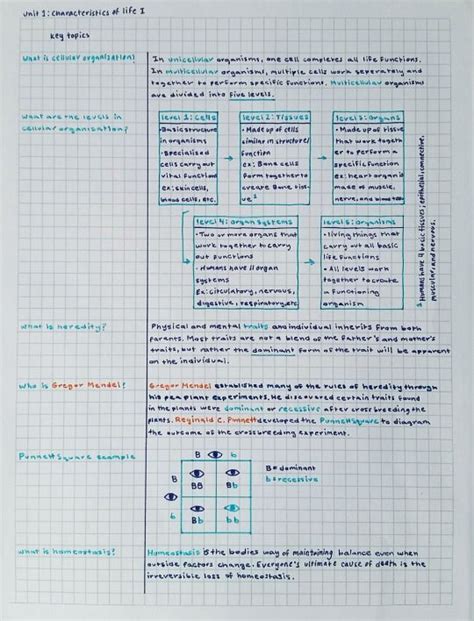 Unit 1: Characteristics of life I
Key topics
What is cellular organisation?
In unicellular organisms, one cell completes all life functions.
In multicellular organisms, multiple cells work seperately and
together to perform specific functions. Multicellular organisms
are divided into five levels.
What are the levels in
cellular organisation?
level 1: Cells
• Basic structure
in organisms
• specialised
cells carry out
vital functions
ex: skin cells,
blood cells, etc.
level 2: Tissues
• Made up of cells
similar in structure/
function
ex: Bone cells
form together to
create Bone tis-
sue¹
level 3: organs
• Made up of tissue
that work togeth-
er to perform a
specific function
ex: heart organ is
made of muscle,
nerve, and blood tissue
level 4: organ systems
• Two or more organs that
work together to carry
out functions
• Humans have 11 organ
systems
Ex: circulatory, nervous,
digestive, respiratory, etc.
level 5: organisms
• living things that
carry out all basic
life functions
• All levels work
together to create
a functioning
organism
¹ Humans have 4 basic tissues; epithelial, connective,
muscular, and nervous.
What is heredity?
Physical and mental traits and individual inherits from both
parents. Most traits are not a blend of the father's and mother's
traits, but rather the dominant form of the trait will be apparent
on the individual.
Who is Gregor Mendel?
Gregor Mendel established many of the rules of heredity through
his pea plant experiments. He discovered certain traits found
in the plants were dominant or recessive after cross breeding the
plants. Reginald C. Punnett developed the Punnett Square to diagram
the outcome of the cross breeding experiment.
Punnett Square example
B b
B BB Bb
b Bb bb
B = dominant
b = recessive
What is homeostasis?
Homeostasis is the bodies way of maintaining balance even when
outside factors change. Everyone's ultimate cause of death is the
irreversible loss of homeostasis.